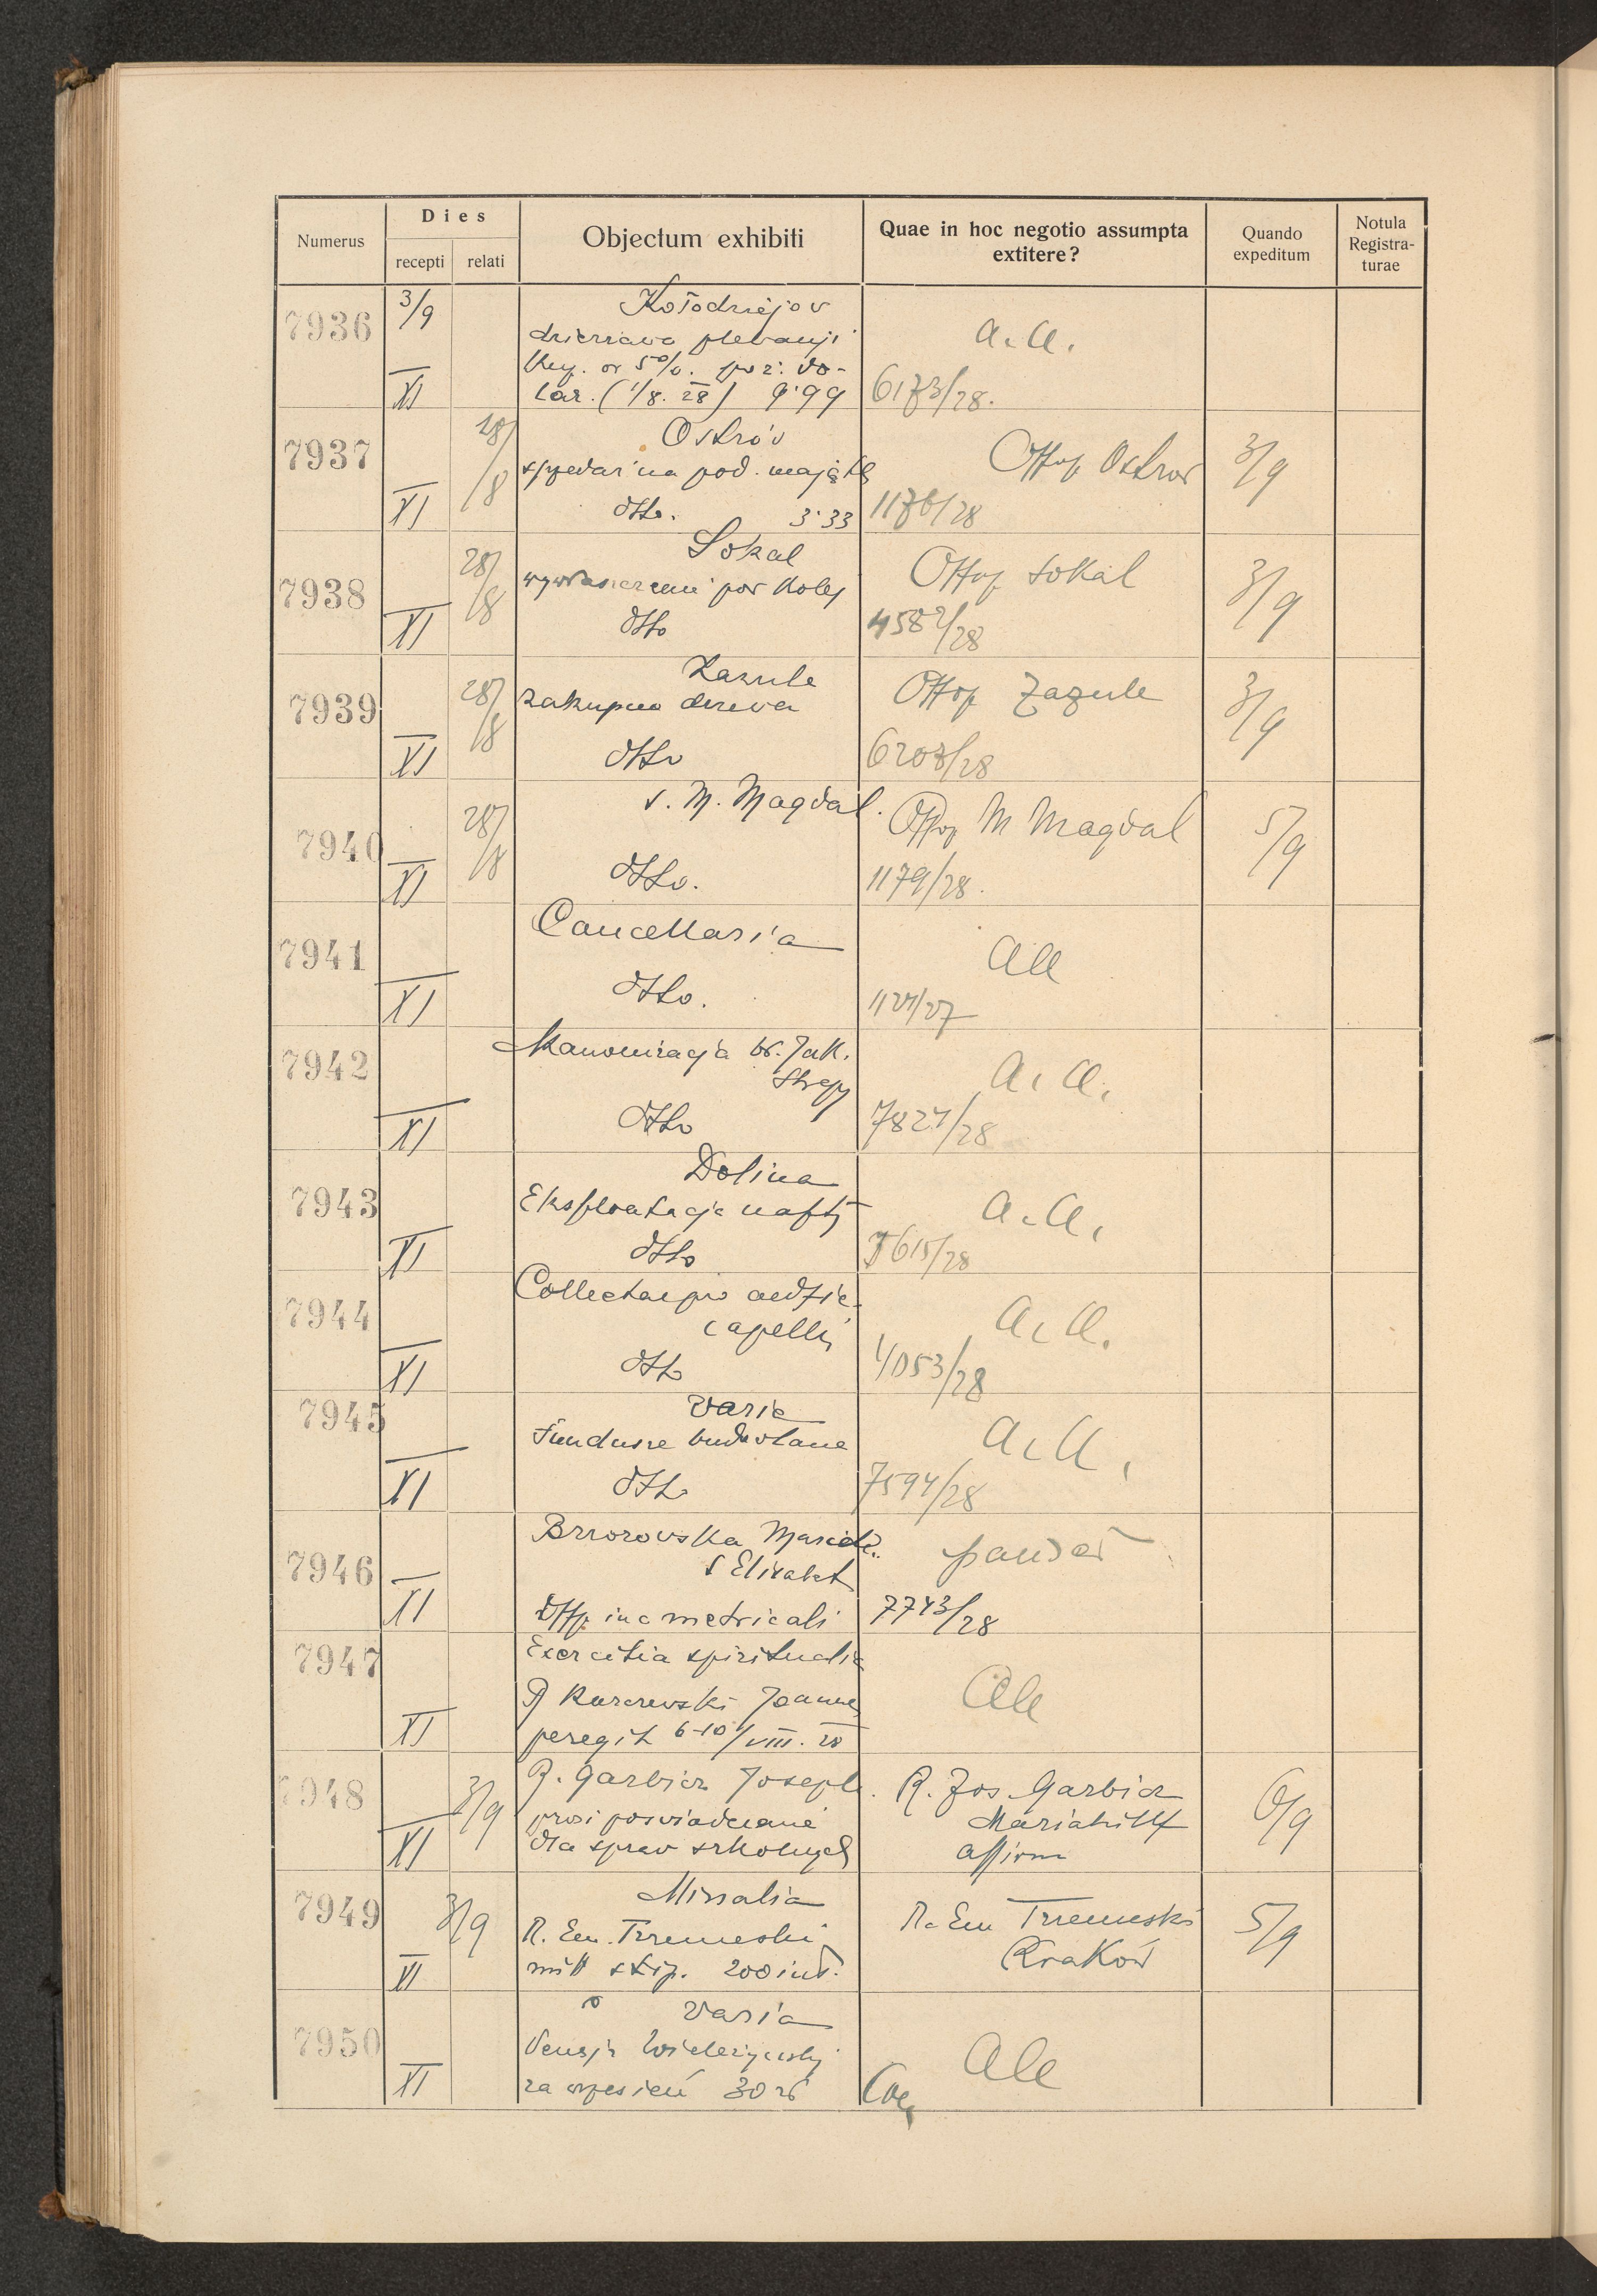 Numerus
Dies
recepti relati
Objectum exhibiti
Quae in hoc negotio assumpta
extitere?
Quando
expeditum
Notula
Registra-
turae
7936 3/9 XI
Kołodziejów
dzierżawa plebanji
5%. poż. do-
lar. (1/8. 28) 9·99
a. a.
6173/28.
7937 XI 28/8
Ostrów
sprzedaż na pod. majątk
dtto. 3·33
Offop Ostrow
1176/28
3/9
7938 XI 28/8
Sokal
wywłaszczeni pod Kolej
dtto
Offop Sokal
4582/28
3/9
7939 XI 28/8
Zazule
zakupno drzewa
dtto
Offop Zazule
6208/28
3/9
7940 XI 28/8
s. M. Magdal.
dtto.
Offop M Magdal
1179/28.
5/9
7941 XI
Cancellaria
dtto.
aa
1127/27
7942 XI
Kanonizacja bł. Jak.
Strepy
dtto
a. a.
7827/28
7943 XI
Dolina
Eksploatacja nafty
dtto
a. a.
7615/28
7944 XI
Collectae pro aedific.
capelli
dtto
a. a.
4053/28
7945 XI
Varia
Fundusze budowlane
dtto
a. a.
7594/28
7946 XI
Brzozowska
S Elisabet
in c metricali
7743/28
7947 XI
Exercitia spiritualia
R Karczewski Joannes
peregit 6-10/VIII. 28
aa
7948 XI 3/9
R. Garbicz Joseph.
prosi poświadczenie
dla spraw szkolnych
R. Jos. Garbicz
Mariahilf
affirm
6/9
7949 XI 3/9
Missalia
R. Em. Trzemeski
mitt stip. 200 int.
R. Em Trzemeski
Kraków
5/9
7950 XI
Varia
za wrzesień 30 zł
aa